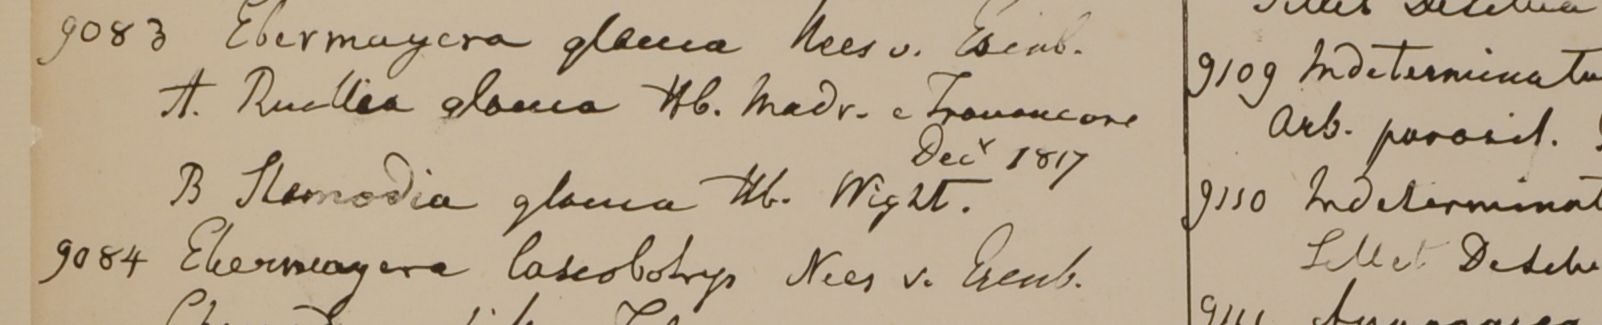 9083 Ebermayera glauca Nees v. Esenb.
A. Ruellia glauca Hb. Madr. e Travancore
Decr 1817
B Stemodia glauca Hb. Wight.
9084 Ebermayera lasiobotrys Nees v. Esenb.
9109 Indeterminatu
Arb. parasit.
9110 Indeterminat
Sillet
9111